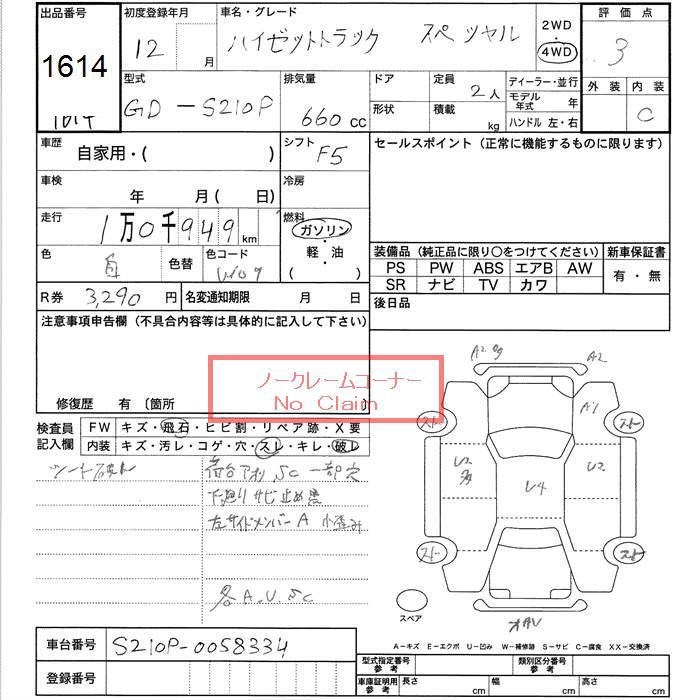 出品番号 初度登録年月 車名・グレード 2WD 評価点
1614 12 月 ハイゼットトラック スペツャル 4WD 3
型式 排気量 ドア 定員 2 人 ディーラー・並行 外装 内装
GD-S210P 660 cc 形状 積載 kg モデル年式 年 C
ハンドル 左・右
車歴 自家用・( ) シフト F5 セールスポイント (正常に機能するものに限ります)
車検 年 月( 日) 冷房
走行 1万0千949 km 燃料 ガソリン
軽・油
( )
色 白 色替 色コード W09
装備品 (純正品に限り〇をつけてください) 新車保証書
PS PW ABS エアB AW 有・無
SR ナビ TV カワ
R券 3,290 円 名変通知期限 月 日 後日品
注意事項申告欄 (不具合内容等は具体的に記入して下さい)
ノークレームコーナー
No Claim
修復歴 有 〔箇所 〕
検査員記入欄 FW キズ・飛石・ヒビ割・リペア跡・X要
内装 キズ・汚レ・コゲ・穴・スレ・キレ・破レ
シート破れ 荷台アオリ SC 一部穴
下廻りサビ止め黒
左サイドメンバーA 小歪み
各A.U.SC
A2多 A2
A1
U2多 U4 U2
スペア
A－キズ E－エクボ U－凹み W－補修跡 S－サビ C－腐食 XX－交換済
車台番号 S210P-0058334
登録番号
型式指定番号 参考 類別区分番号 参考
車庫証明用 参考 長さ cm 幅 cm 高さ cm